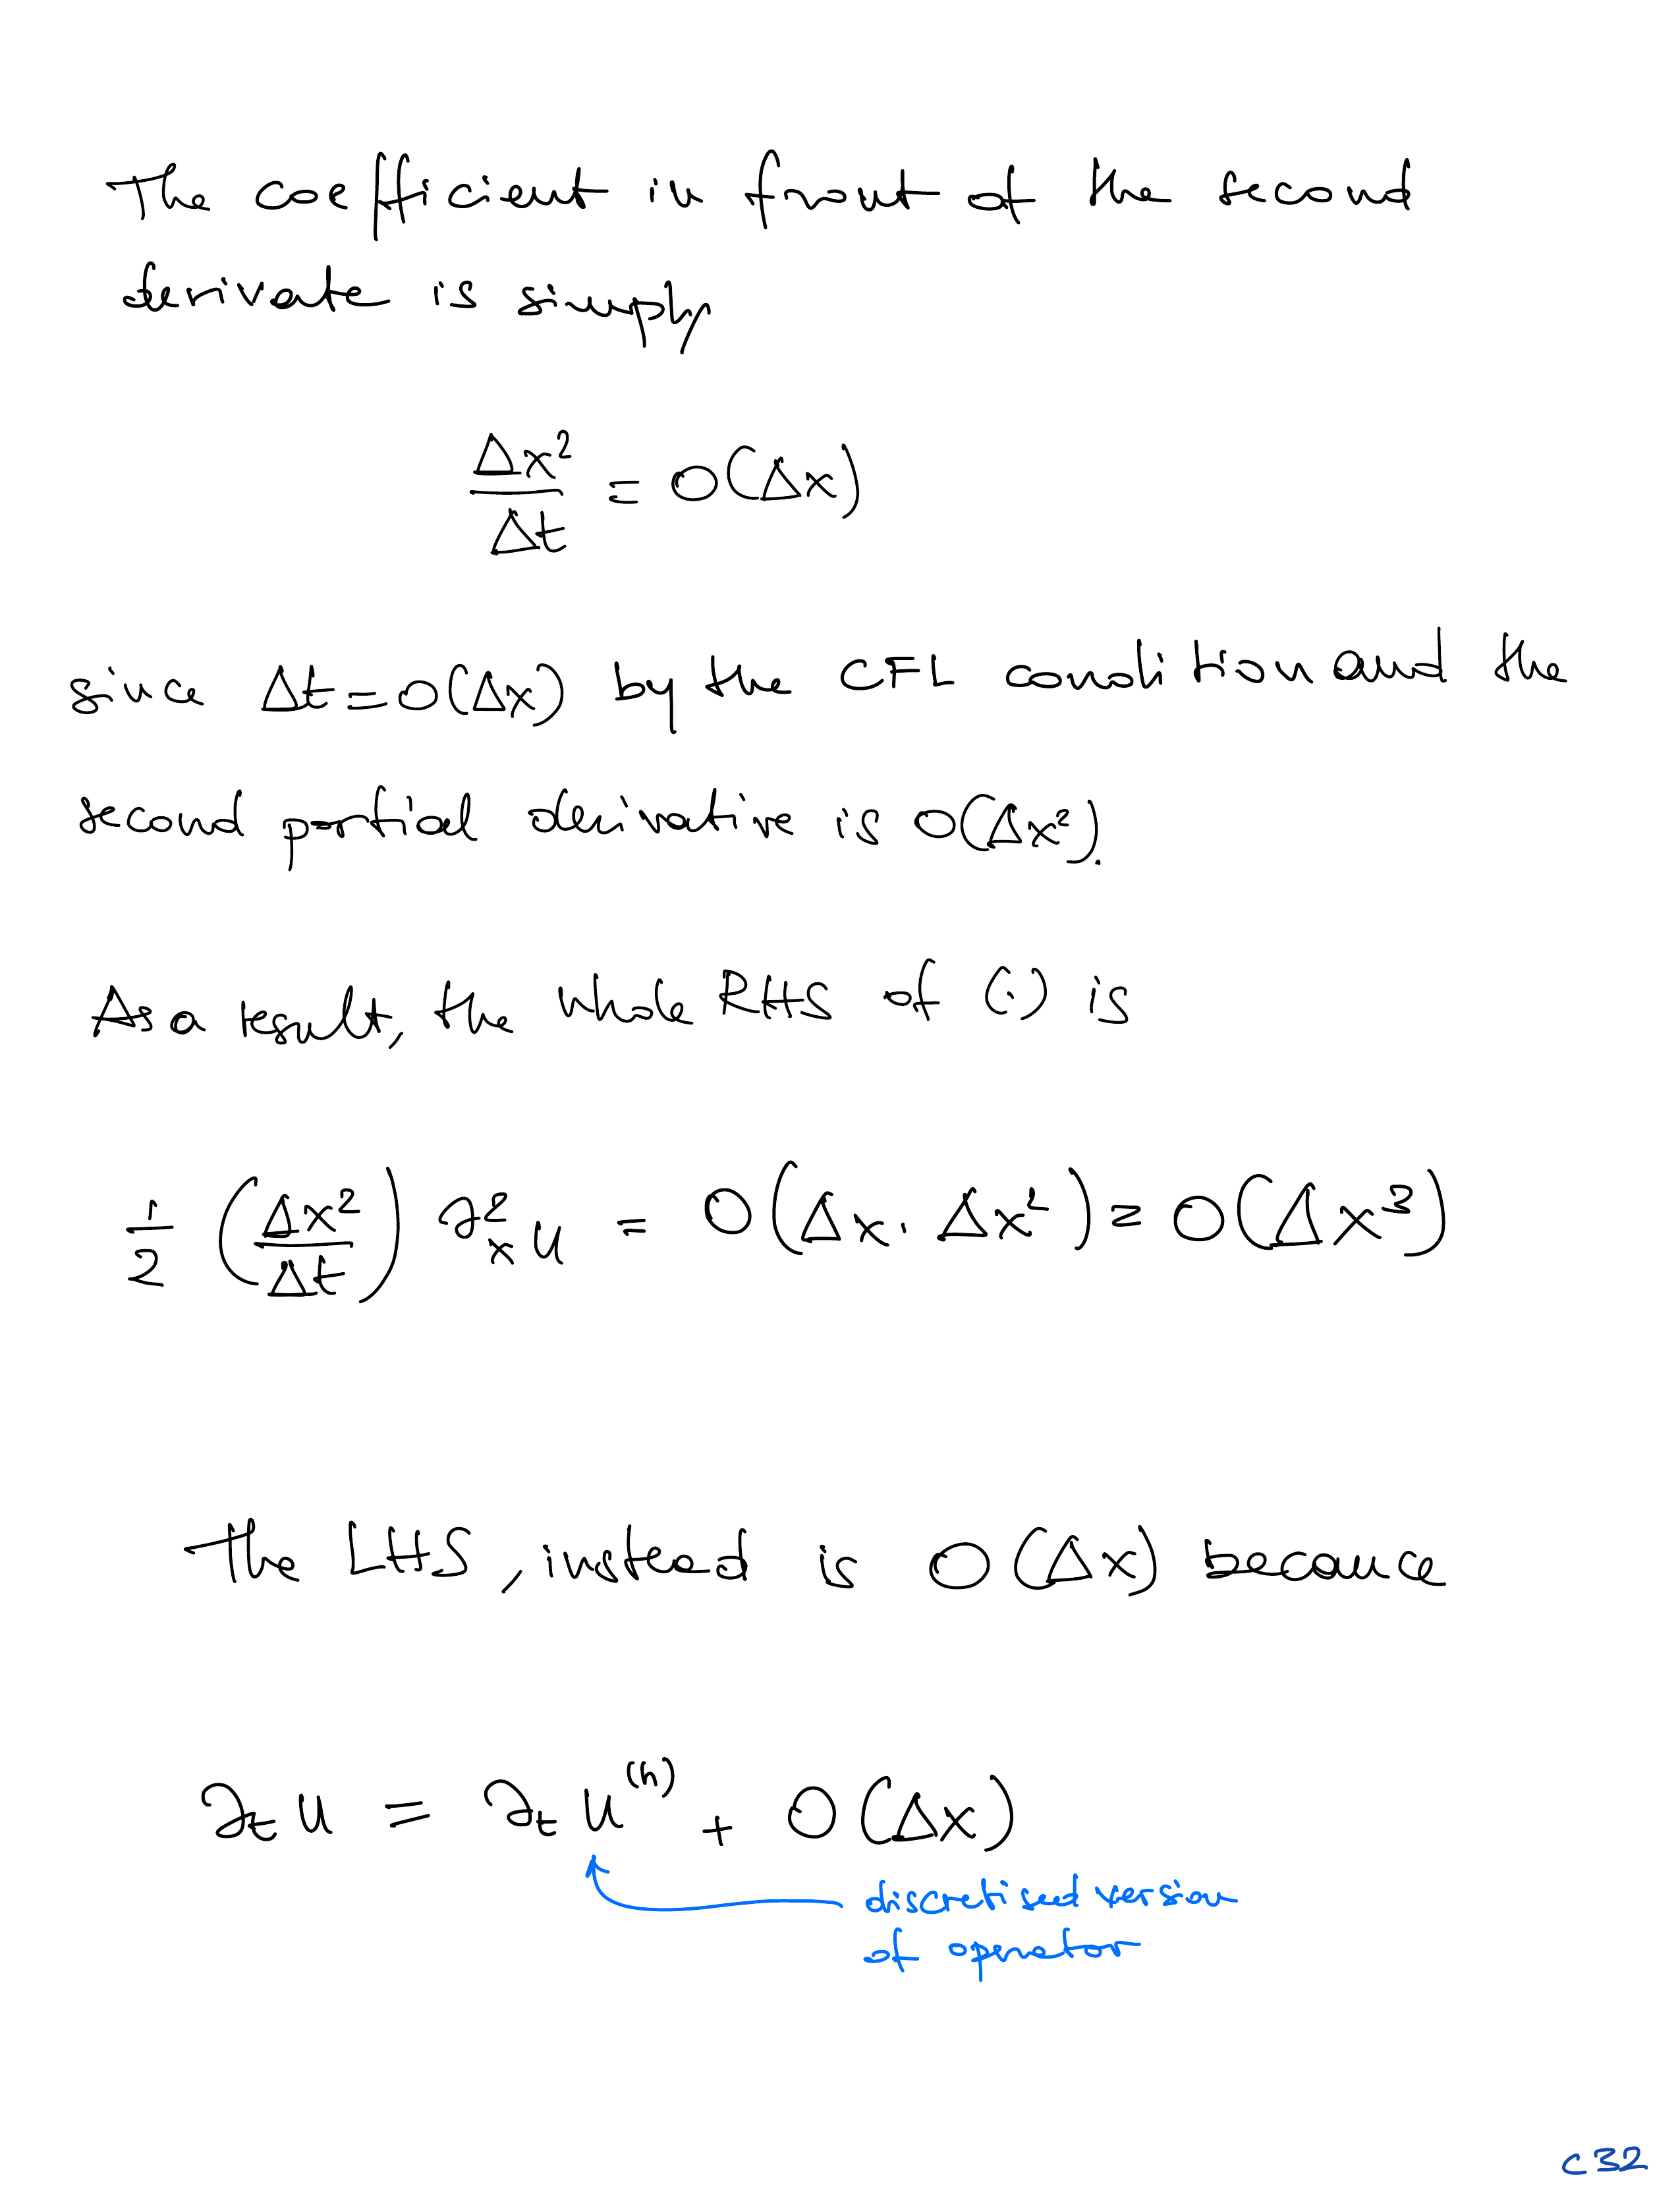 The coefficient in front of the second
derivate is simply
Δx²/Δt = O(Δx)
since Δt = O(Δx) by the CFL condition and the
second partial derivative is O(Δx²).
As a result, the whole RHS of (·) is
1/2 (Δx²/Δt) ∂²ₓ u = O(Δx · Δx²) = O(Δx³)
The LHS, instead is O(Δx) because
∂ₜ u = ∂ₜ u⁽ʰ⁾ + O(Δx)
discretised version
of operator
C32